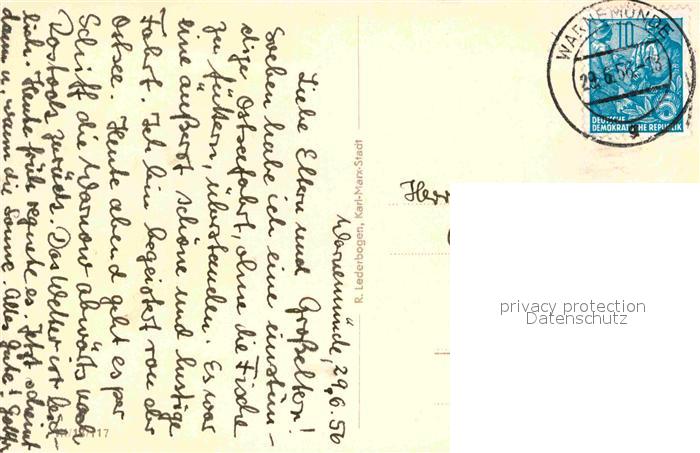 Warnemünde, 29.6.56
Liebe Eltern und Großeltern!
Soeben habe ich eine einstün-
dige Ostseefahrt, ohne die Fische
zu füttern, überstanden. Es war
eine äußerst schöne und lustige
Fahrt. Ich bin begeistert von der
Ostsee. Heute abend geht es per
Schiff die Warnow abwärts nach
Rostock zurück. Das Wetter ist leid-
lich. Heute früh regnete es. Jetzt scheint
dann u. wann die Sonne. Alles Gute!
R. Lederbogen, Karl-Marx-Stadt
WARNEMÜNDE
29.6.56.-13
10
DEUTSCHE
DEMOKRATISCHE REPUBLIK
Herr
privacy protection
Datenschutz